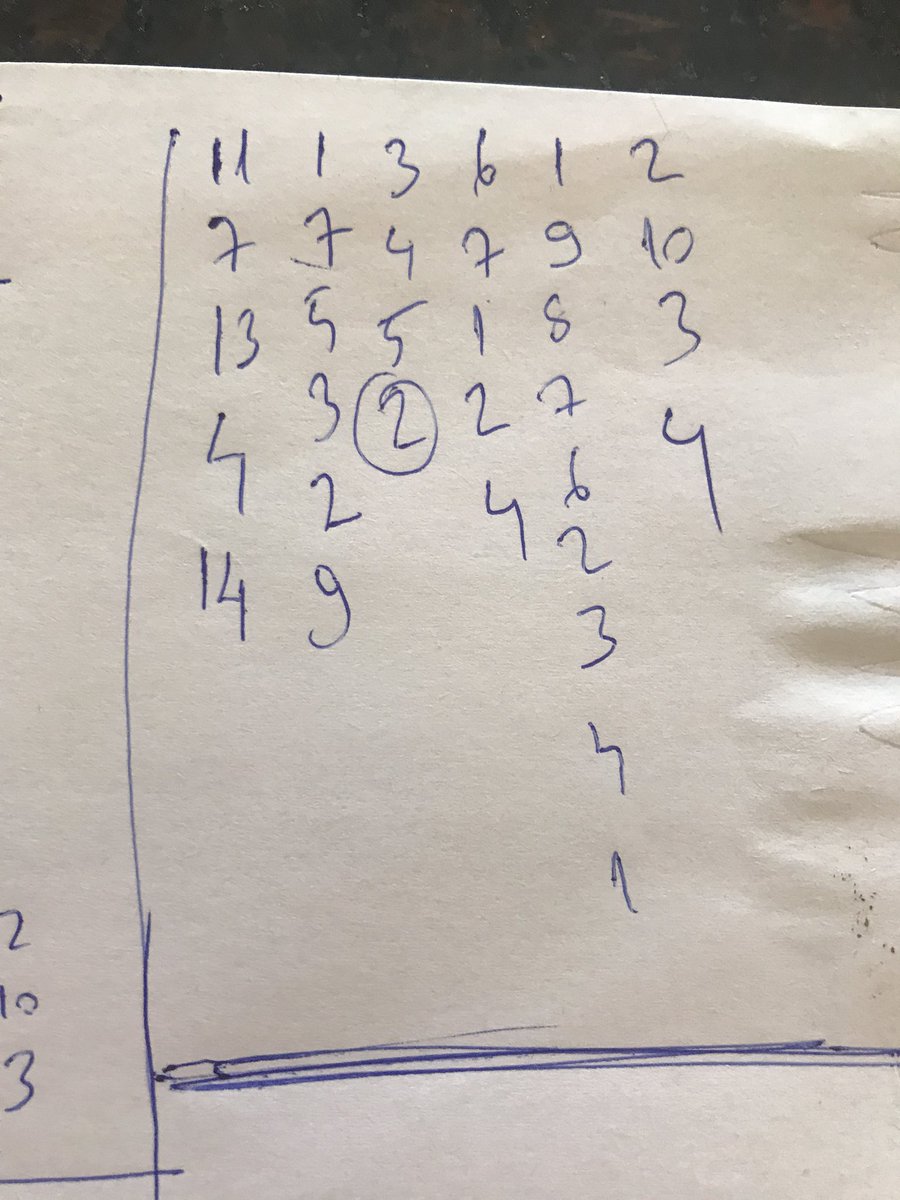 11 1 3 6 1 2
7 7 4 7 9 10
13 5 5 1 8 3
4 3 2 2 7 4
14 2 4 6
9 2
3
4
1
2
10
3